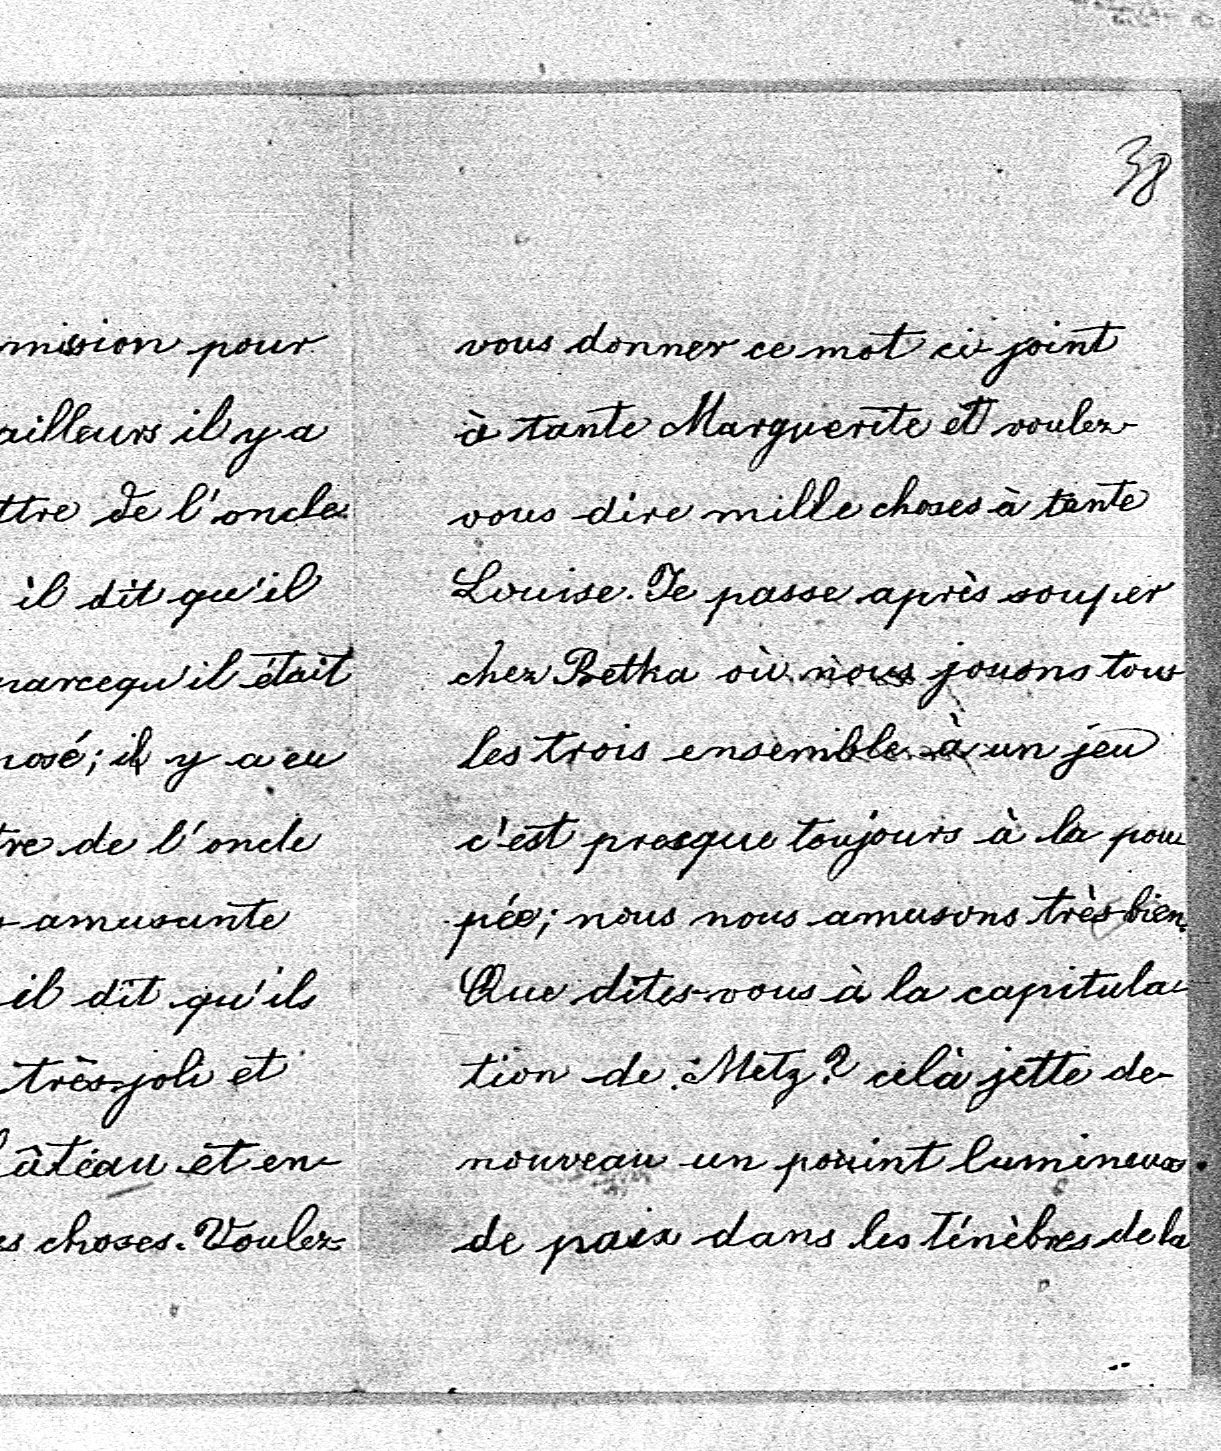 38
mission pour
ailleurs il y a
ttre de l'oncle
il dit qu'il
parcequ'il était
posé; il y a eu
tre de l'oncle
amusante
il dit qu'ils
très-joli et
âteau et en-
es choses. Voulez
vous donner ce mot ci-joint
à tante Marguerite et voulez-
vous dire mille choses à tante
Louise. Je passe après souper
chez Betka où nous jouons tous
les trois ensemble à un jeu
c'est presque toujours à la pou
pée; nous nous amusons très-bien.
Que dites-vous à la capitula-
tion de Metz? celà jette de-
nouveau un pouint lumineux
de paix dans les ténèbres de la